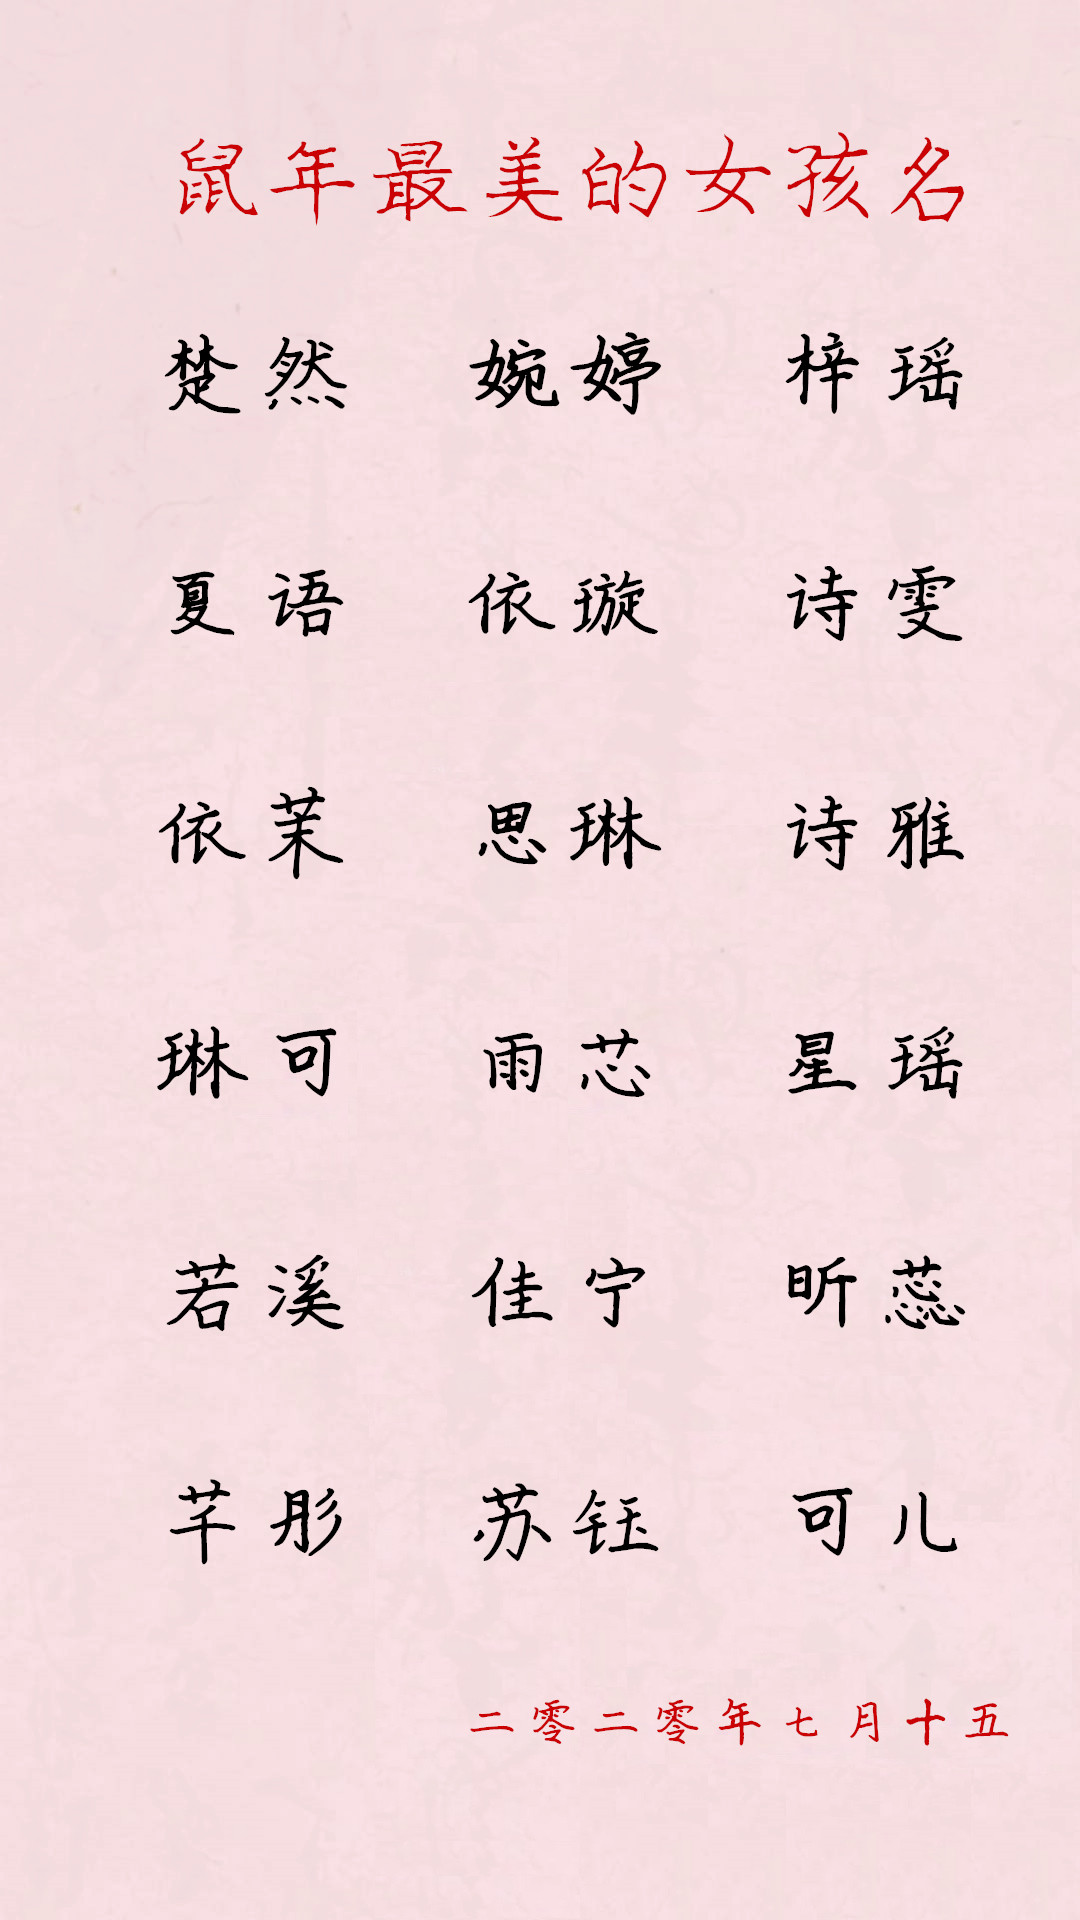 鼠年最美的女孩名
楚然 婉婷 梓瑶
夏语 依璇 诗雯
依茉 思琳 诗雅
琳可 雨芯 星瑶
若溪 佳宁 昕蕊
芊彤 苏钰 可儿
二零二零年七月十五